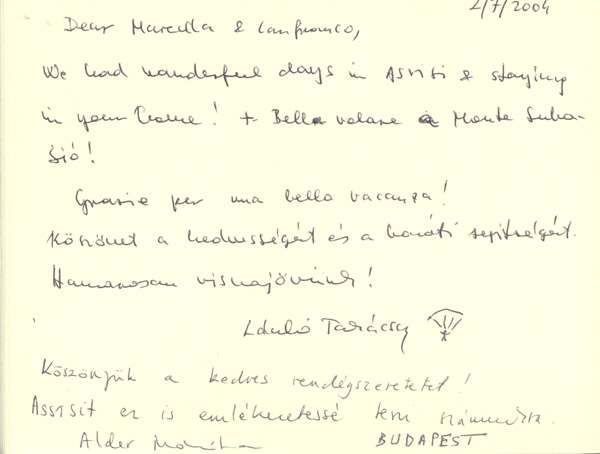 2/7/2004
Dear Marcella & Lanfranco,
We had wonderful days in ASSISI & staying
in your home! + Bella volare a Monte Suba-
sió!
Grasie per una bella vacanza!
Köszönet a kedvességért és a baráti segítségért.
Hamarosan visszajövünk!
László
Köszönjük a kedves vendégszeretetet!
Assisit ez is emlékezetessé teszi számunkra.
Alder BUDAPEST